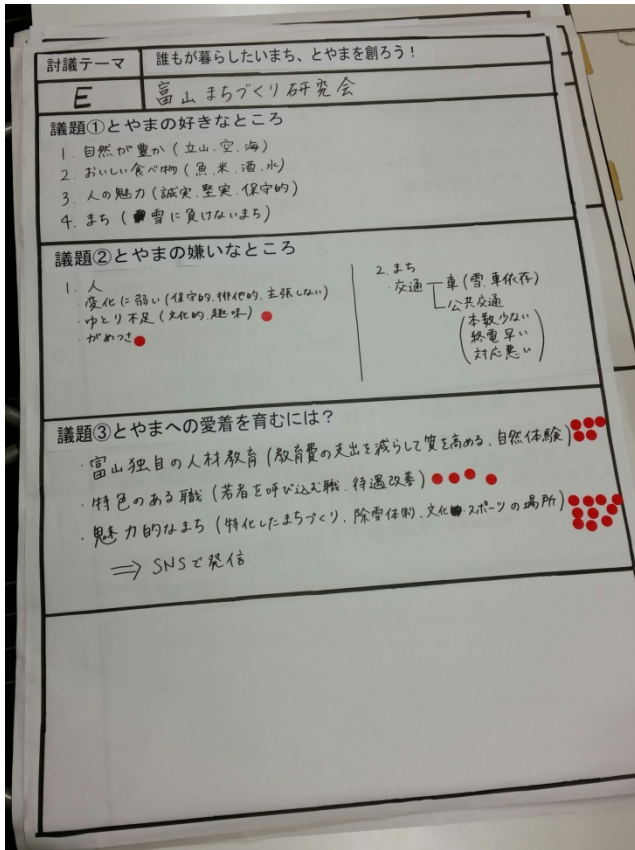 討議テーマ
誰もが暮らしたいまち、とやまを創ろう！
E
富山まちづくり研究会
議題①とやまの好きなところ
1. 自然が豊か(立山.空.海)
2. おいしい食べ物(魚.米.酒.水)
3. 人の魅力(誠実.堅実.保守的)
4. まち(雪に負けないまち)
議題②とやまの嫌いなところ
1. 人
・変化に弱い(保守的.排他的.主張しない)
・ゆとり不足(文化的.趣味)
・がめつさ
2. まち
・交通
車(雪.車依存)
公共交通
(本数少ない
終電早い
対応悪い)
議題③とやまへの愛着を育むには？
・富山独自の人材教育(教育費の支出を減らして質を高める、自然体験)
・特色のある職(若者を呼び込む職、待遇改善)
・魅力的なまち(特化したまちづくり、除雪体制、文化・スポーツの場所)
⇒ SNSで発信